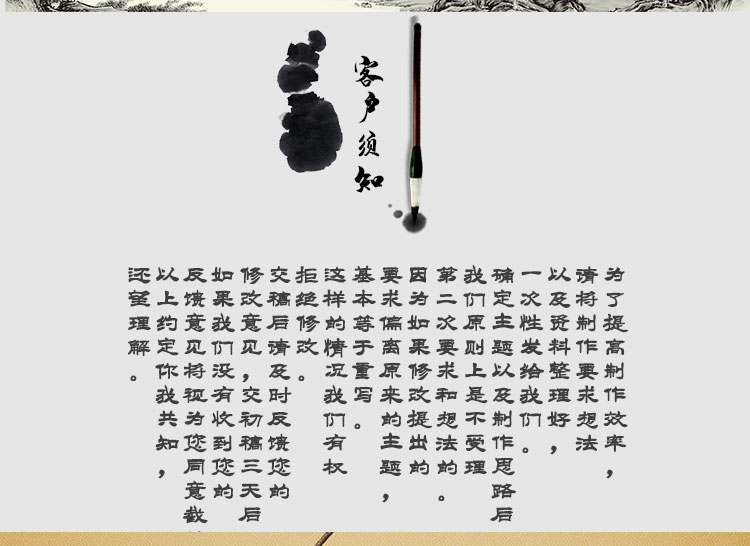 客户须知
为了提高制作效率，
请将制作要求想法
以及资料整理好，
一次性发给我们。
确定主题以及制作思路后
我们原则上是不受理
第二次要求和想法的。
因为如果修改提出的
要求偏离原来的主题，
基本等于重写。
这样的情况我们有权
拒绝修改。
交稿后请及时反馈您的
修改意见，交初稿三天后
如果我们没有收到您的
反馈意见将视为您同意截
以上约定你我共知，
还望理解。